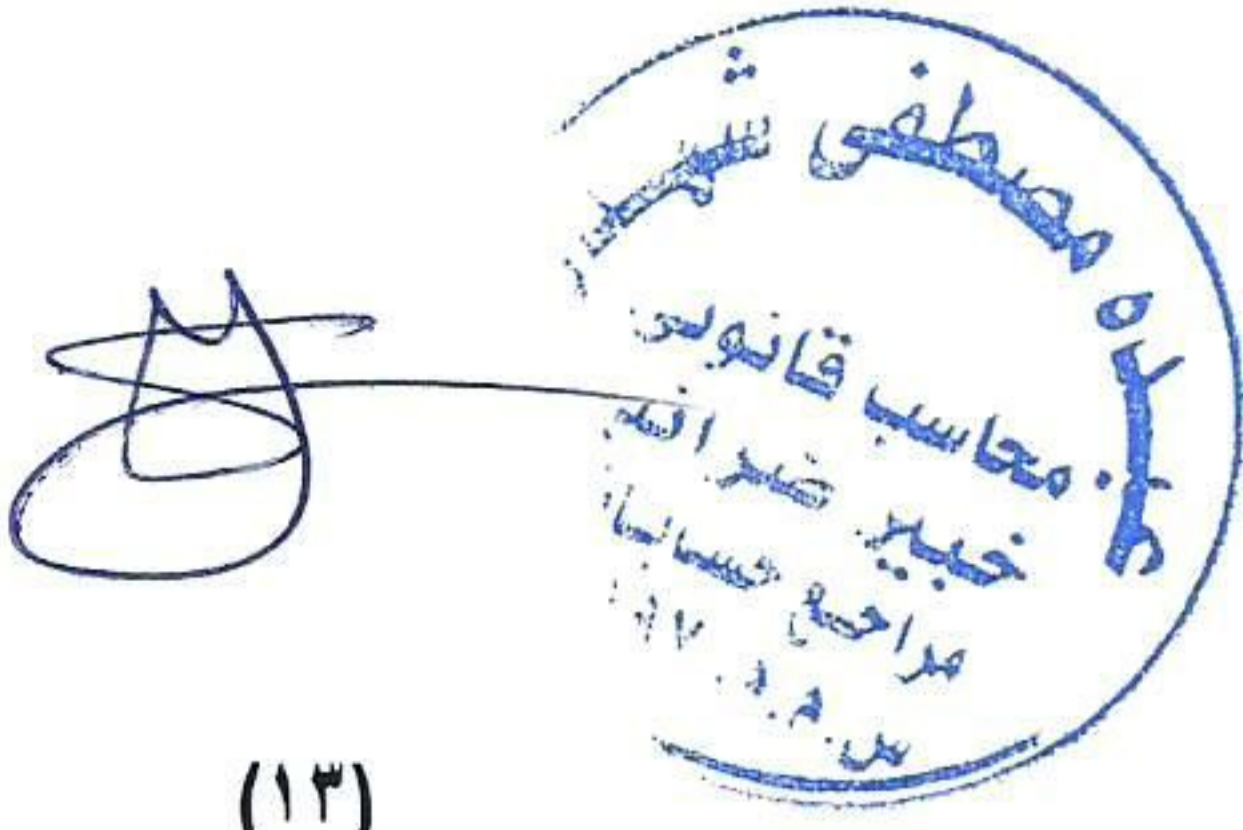 عزه مصطفى
محاسب قانونى
خبير ضرائب
مراجع حسابات
س.م.م.
(١٣)